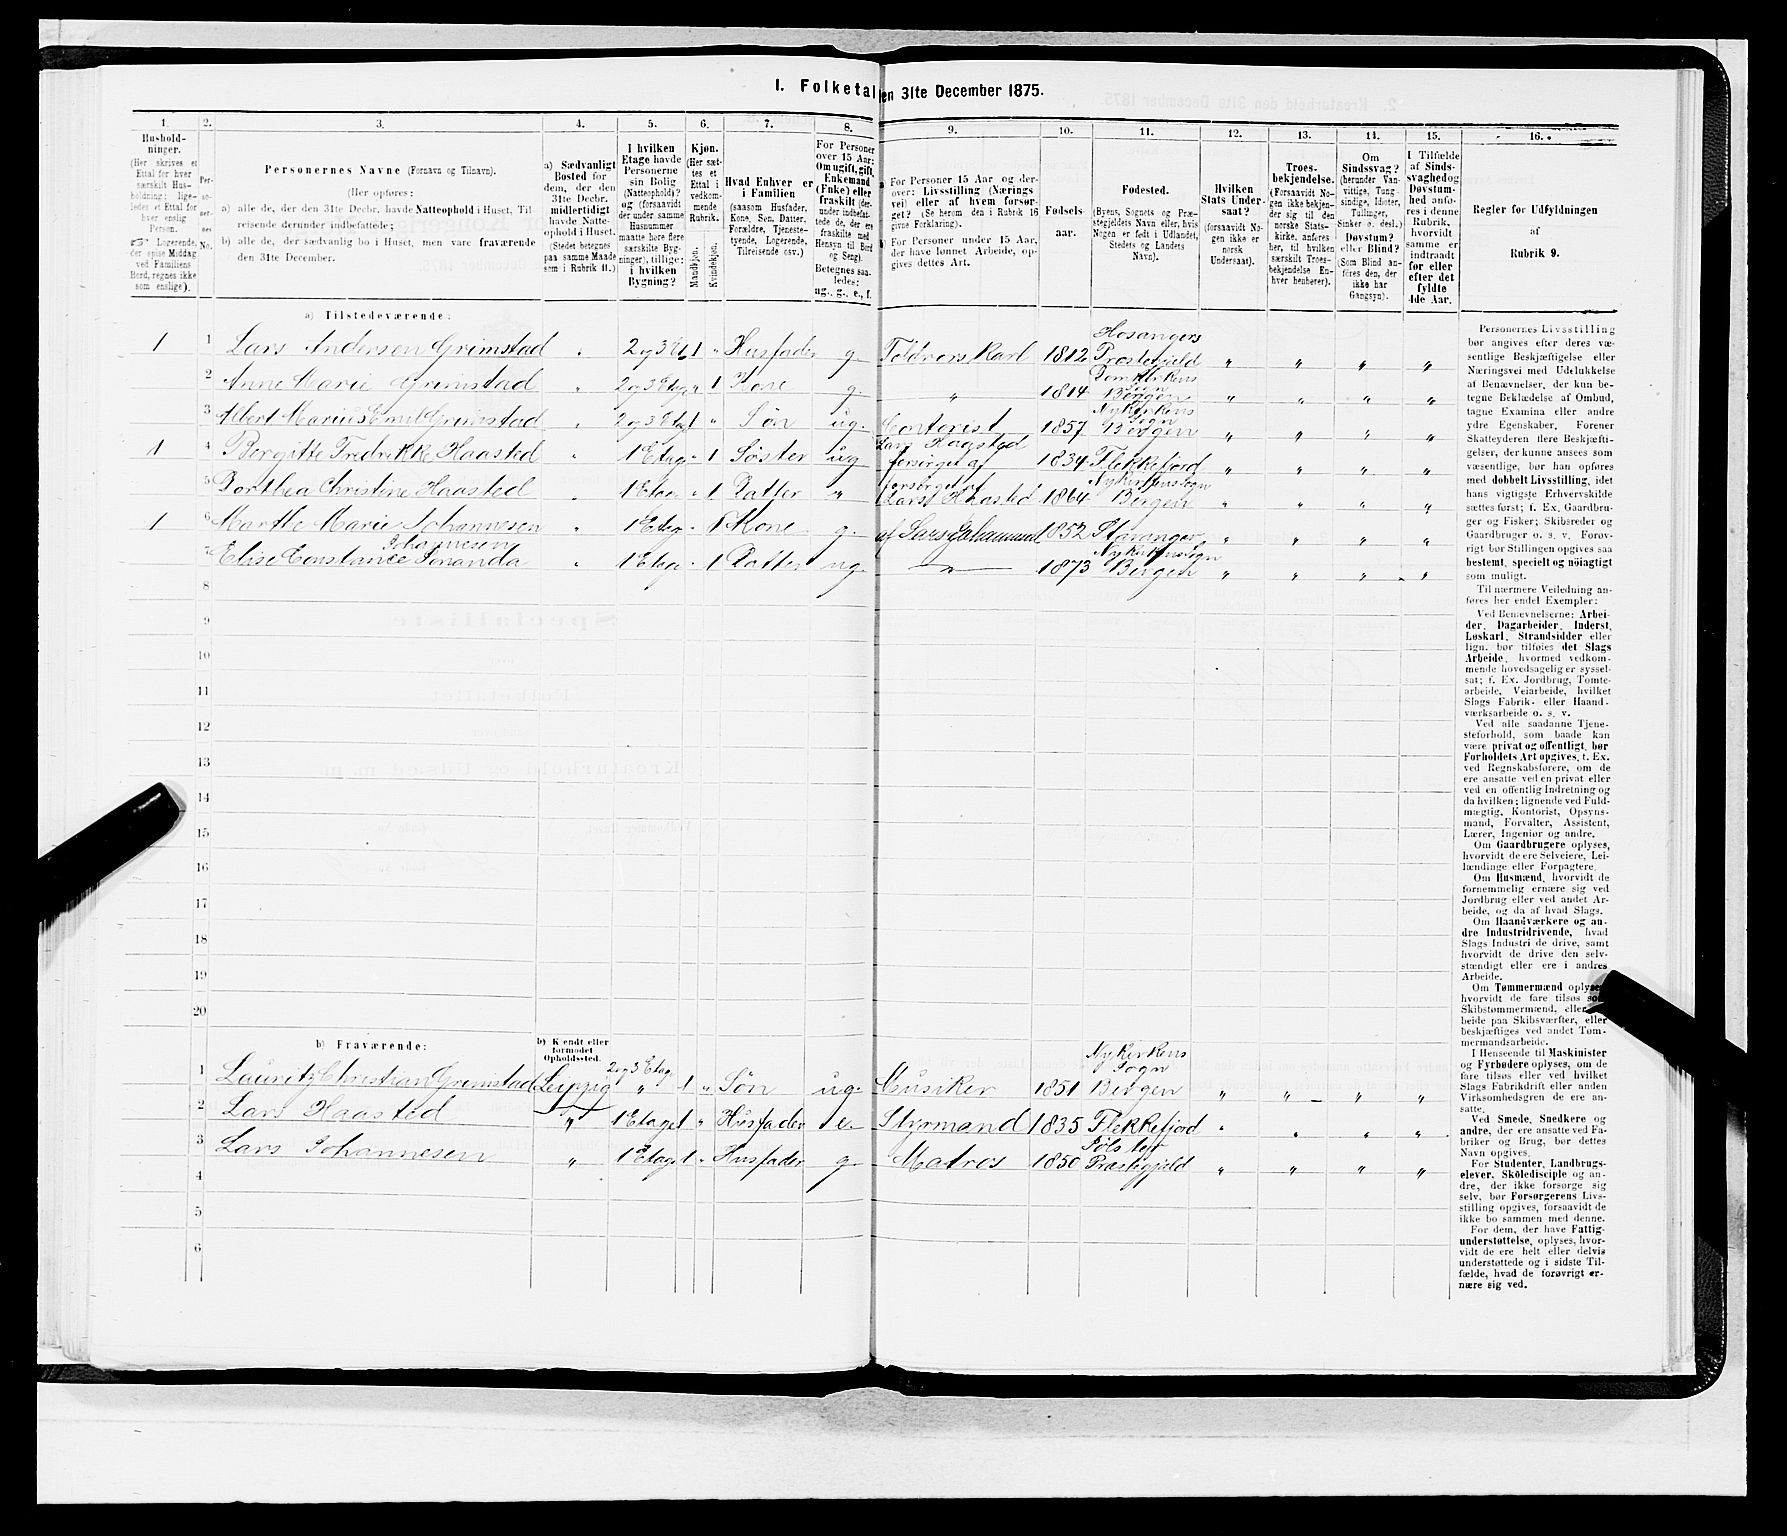 1. Folketal den 31te December 1875.
1. 2. 3. 4. 5. 6. 7. 8. 9. 10. 11. 12. 13. 14. 15. 16.
Hushold-
ninger.
(Her skrives et
Ettal for hver
særskilt Hus-
holdning; lige-
ledes et Ettal for
hver enslig
Person.
☞ Logerende,
der spise Middag
ved Familiens
Bord, regnes ikke
som enslige).
Per-
so-
ner-
nes
No.
Personernes Navne (Fornavn og Tilnavn).
(Her opføres:
a) alle de, der den 31te Decbr. havde Natteophold i Huset, Til-
reisende derunder indbefattede;
b) alle de, der sædvanlig bo i Huset, men vare fraværende
den 31te December.
a) Sædvanligt
Bosted for
dem, der den
31te Decbr.
midlertidigt
havde Natte-
ophold i Huset.
(Stedet betegnes
paa samme Maade
som i Rubrik 11.)
I hvilken
Etage havde
Personerne
sin Bolig
(Natteophold)?
og (forsaavidt
der under samme
Husnummer
maatte høre flere
særskilte Byg-
ninger), tillige:
i hvilken
Bygning?
Kjøn.
(Her sæt-
tes et
Ettal i
vedkom-
mende
Rubrik.
Mandkjøn.
Kvindekjøn.
Hvad Enhver er
i Familien
(saasom Husfader,
Kone, Søn, Datter,
Forældre, Tjeneste-
tyende, Logerende,
Tilreisende osv.)
For Personer
over 15 Aar:
Om ugift, gift,
Enkemand
(Enke) eller
fraskilt (der-
under indbefat-
tede de, der ere
fraskilte med
Hensyn til Bord
og Seng).
Betegnes saa-
ledes:
ug., g., e., f.
For Personer 15 Aar og der-
over: Livsstilling (Nærings
vei) eller af hvem forsør-
get? (Se herom den i Rubrik 16
givne Forklaring).
For Personer under 15 Aar,
der have lønnet Arbeide, op-
gives dettes Art.
Fødsels
aar.
Fødested.
(Byens, Sognets og Præ-
stegjeldets Navn eller, hvis
Nogen er født i Udlandet,
Stedets og Landets
Navn).
Hvilken
Stats Under-
saat?
(forsaavidt No-
gen ikke er
norsk
Undersaat).
Troes-
bekjendelse.
(Forsaavidt No-
gen ikke bekjen-
der sig til den
norske Stats-
kirke, anføres
her, til hvilken
særskilt Troes-
bekjendelse En-
hver henhører).
Om
Sindssvag?
(herunder Van-
vittige, Tung-
sindige, Idioter,
Tullinger,
Sinker o. desl.)
Døvstum?
eller Blind?
(Som Blind an-
føres den, der
ikke har
Gangsyn).
I Tilfælde
af Sinds-
svaghed og
Døvstum-
hed anfø-
res i denne
Rubrik,
hvorvidt
samme er
indtraadt
før eller
efter det
fyldte
4de Aar.
Regler for Udfyldningen
af
Rubrik 9.
a) Tilstedeværende:
1 1 Lars Andersen Grimstad " 2 og 3 Et 1 " Husfader g. Toldvors Karl 1812 Hosangers Præstegield " " " "
2 Anne Marie Grimstad " 2 og 3 Etag " 1 Kone g " 1814 Domkirkens Sogn Bergen " " " "
3 Albert Marius Emil Grimstad " 2 og 3 Etag 1 " Søn ug. Contorist 1857 Nykirkens Sogn Bergen " " " "
1 4 Bergitte Fredrikke Haasted " 1 Etag " 1 Søster ug forsørget af Lars Haasted 1834 Flekkefjord " " " "
5 Dorthea Christine Haasted " 1 Etag " 1 Datter " forsørget af Lars Haasted 1864 Nykirkens Sogn Bergen " " " "
1 6 Marthe Marie Johannesen " 1 Etag " 1 Kone g. af Lars Johannesen 1852 Stavanger " " " "
7 Elise Constance Johannesen " 1 Etag " 1 Datter ug. " 1873 Nykirkens Sogn Bergen " " " "
8
9
10
11
12
13
14
15
16
17
18
19
20
b) Fraværende:
b) Kjendt eller
formodet
Opholdssted.
1 Lauritz Christian Grimstad Leipzig 2 og 3 Etag " 1 " Søn ug. Musiker 1851 Nykirkens Sogn Bergen " " " "
2 Lars Haasted " 1 Etage 1 " Husfader e. Styrmand 1835 Flekkefjord " " " "
3 Lars Johannesen " 1 Etage 1 " Husfader g Matros 1850 Jølster Præstegjeld " " " "
4
5
6
Personernes Livsstilling
bør angives efter deres væ-
sentlige Beskjæftigelse eller
Næringsvei med Udelukkelse
af Benævnelser, der kun be-
tegne Beklædelse af Ombud,
tagne Examina eller andre
ydre Egenskaber. Forener
Skatteyderen flere Beskjæfti-
gelser, der kunne ansees som
væsentlige, bør han opføres
med dobbelt Livsstilling, idet
hans vigtigste Erhvervskilde
sættes først; f. Ex. Gaardbru-
ger og Fisker; Skibsreder og
Gaardbruger o. s. v. Forøv-
rigt bør Stillingen opgives saa
bestemt, specielt og nøiagtig
som muligt.
Til nærmere Veiledning an-
føres her endel Exempler:
Ved Benævnelserne: Arbei-
der, Dagarbeider, Inderst,
Løskarl, Strandsidder eller
lign. bør tilføies det Slags
Arbeide, hvormed vedkom-
mende hovedsagelig er syssel-
sat; f. Ex. Jordbrug, Tomte-
arbeide, Veiarbeide, hvilket
Slags Fabrik- eller Haand-
værksarbeide o. s. v.
Ved alle saadanne Tjene-
steforhold, som baade kan
være privat og offentligt, bør
Forholdets Art opgives, t. Ex.
ved Regnskabsførere, om de
ere ansatte ved en privat eller
ved en offentlig Indretning og
da hvilken; lignende ved Fuld-
mægtig, Kontorist, Opsyns-
mand, Forvalter, Assistent,
Lærer, Ingeniør og andre.
Om Gaardbrugere oplyses,
hvorvidt de ere Selveiere, Lei-
lændinge eller Forpagtere.
Om Husmænd, hvorvidt de
fornemmelig ernære sig ved
Jordbrug eller ved andet Ar-
beide, og da af hvad Slags.
Om Haandværkere og an-
dre Industridrivende, hvad
Slags Industri de drive, samt
hvorvidt de drive den selv-
stændigt eller ere i andres
Arbeide.
Om Tømmermænd oplyses
hvorvidt de fare tilsøs som
Skibstømmermænd, eller ar-
beide paa Skibsværfter, eller
beskjæftiges ved andet Tøm-
mermandsarbeide.
I Henseende til Maskinister
og Fyrbødere oplyses, om de
fare tilsøs eller ved hvilket
Slags Fabrikdrift eller anden
Virksomhedsgren de ere an-
satte.
Ved Smede, Snedkere og
andre, der ere ansatte ved Fa-
briker og Brug, bør dettes
Navn opgives.
For Studenter, Landbrugs-
elever, Skoledisciple og an-
dre, der ikke forsørge sig
selv, bør Forsørgerens Livs-
stilling opgives, forsaavidt de
ikke bo sammen med denne.
For dem, der have Fattig-
understøttelse, oplyses, hvor-
vidt de ere helt eller delvis
understøttede og i sidste Til-
fælde, hvad de forøvrigt er-
nære sig ved.